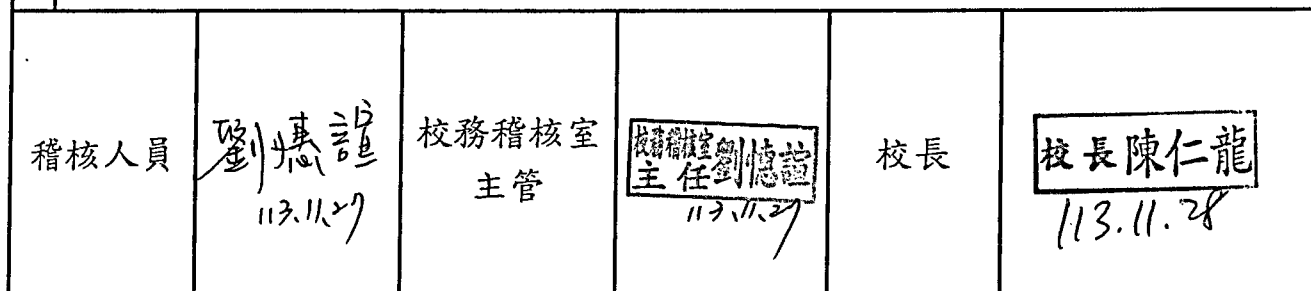 稽核人員
劉憓諠
113.11.27
校務稽核室
主管
校務稽核室
主任劉憓諠
113.11.27
校長
校長陳仁龍
113.11.28